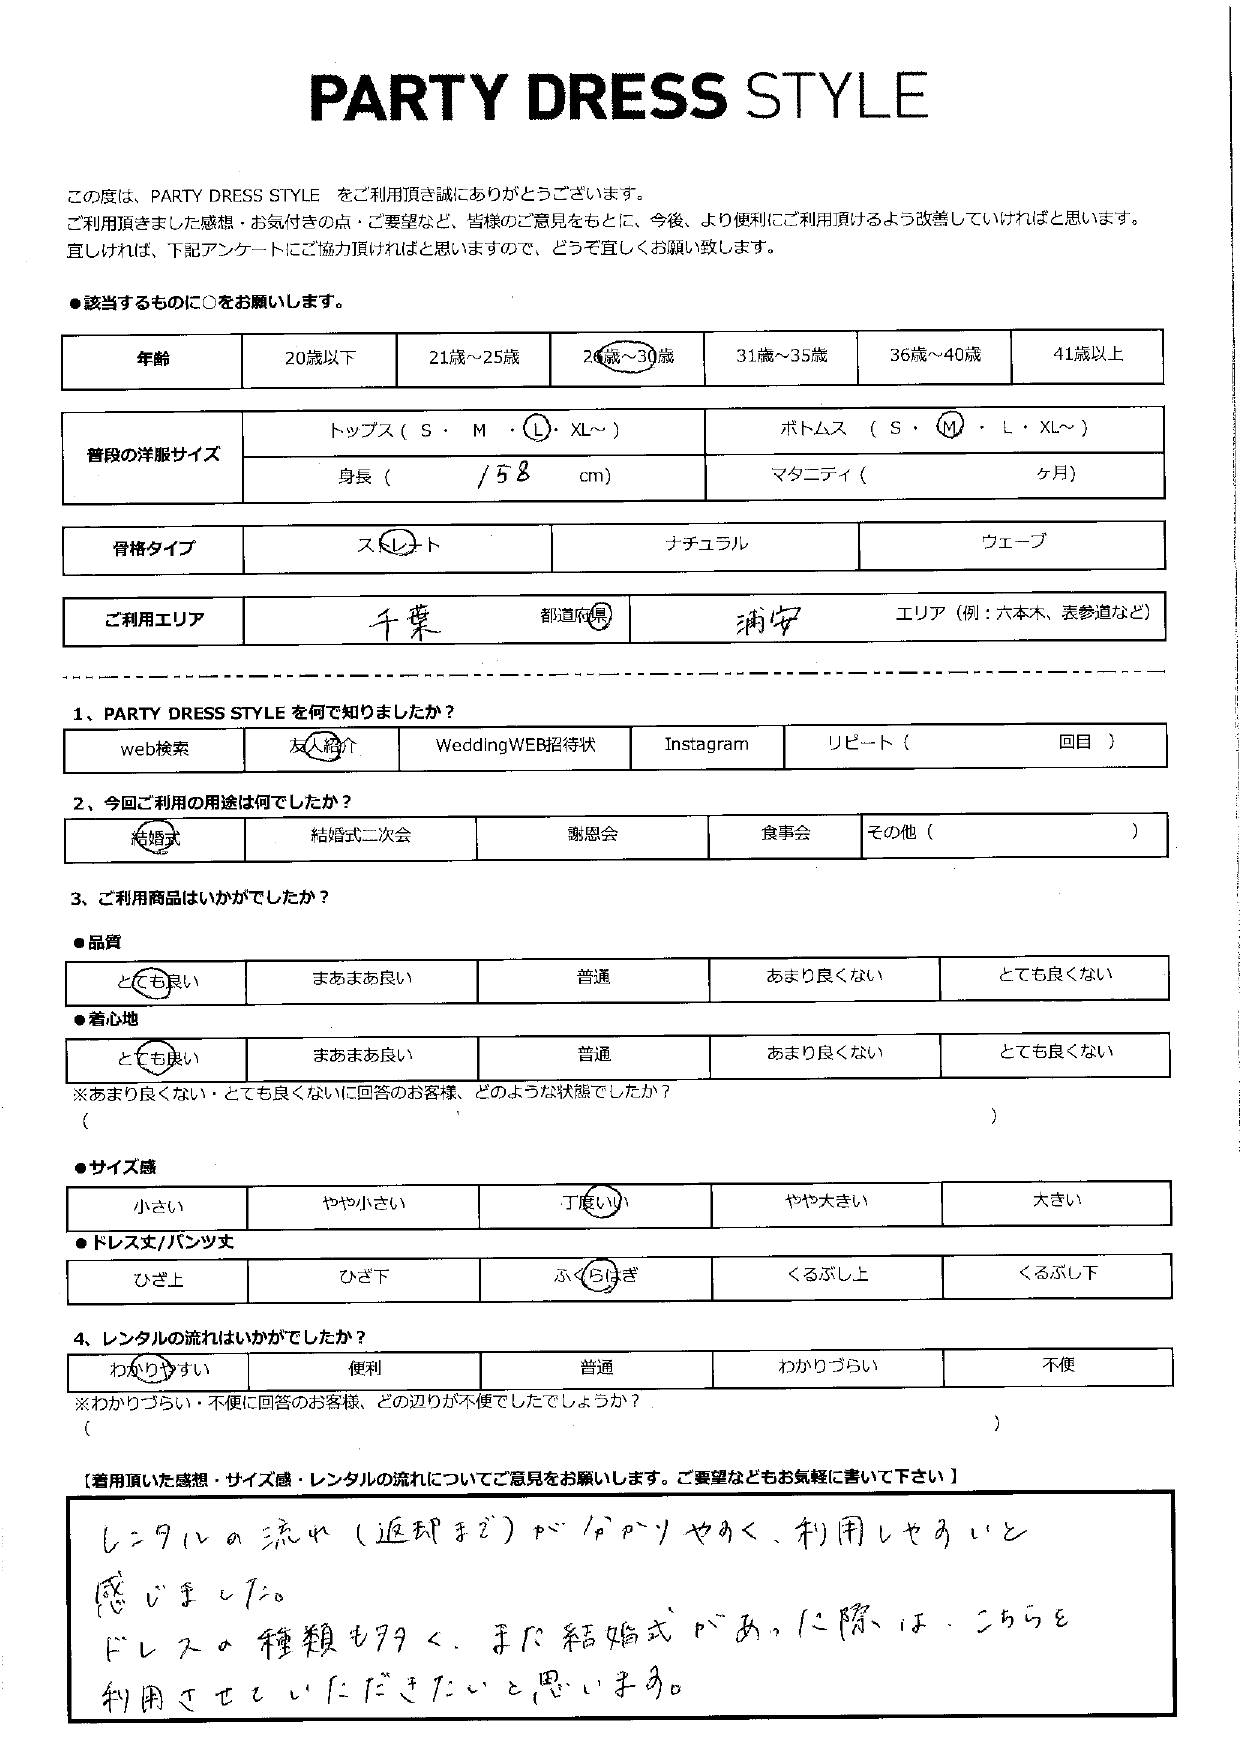 PARTY DRESS STYLE
この度は、PARTY DRESS STYLE をご利用頂き誠にありがとうございます。
ご利用頂きました感想・お気付きの点・ご要望など、皆様のご意見をもとに、今後、より便利にご利用頂けるよう改善していければと思います。
宜しければ、下記アンケートにご協力頂ければと思いますので、どうぞ宜しくお願い致します。
●該当するものに○をお願いします。
年齢 20歳以下 21歳～25歳 26歳～30歳 31歳～35歳 36歳～40歳 41歳以上
普段の洋服サイズ トップス ( S ・ M ・ L ・ XL～ ) ボトムス ( S ・ M ・ L ・ XL～ )
身長 ( 158 cm) マタニティ ( ヶ月)
骨格タイプ ストレート ナチュラル ウェーブ
ご利用エリア 千葉 都道府県 浦安 エリア（例：六本木、表参道など）
1、PARTY DRESS STYLE を何で知りましたか？
web検索 友人紹介 WeddingWEB招待状 Instagram リピート ( 回目 )
2、今回ご利用の用途は何でしたか？
結婚式 結婚式二次会 謝恩会 食事会 その他 ( )
3、ご利用商品はいかがでしたか？
●品質
とても良い まあまあ良い 普通 あまり良くない とても良くない
●着心地
とても良い まあまあ良い 普通 あまり良くない とても良くない
※あまり良くない・とても良くないに回答のお客様、どのような状態でしたか？
( )
●サイズ感
小さい やや小さい 丁度いい やや大きい 大きい
●ドレス丈/パンツ丈
ひざ上 ひざ下 ふくらはぎ くるぶし上 くるぶし下
4、レンタルの流れはいかがでしたか？
わかりやすい 便利 普通 わかりづらい 不便
※わかりづらい・不便に回答のお客様、どの辺りが不便でしたでしょうか？
( )
【着用頂いた感想・サイズ感・レンタルの流れについてご意見をお願いします。ご要望などもお気軽に書いて下さい】
レンタルの流れ（返却まで）が分かりやすく、利用しやすいと
感じました。
ドレスの種類も多く、また結婚式があった際は、こちらを
利用させていただきたいと思います。